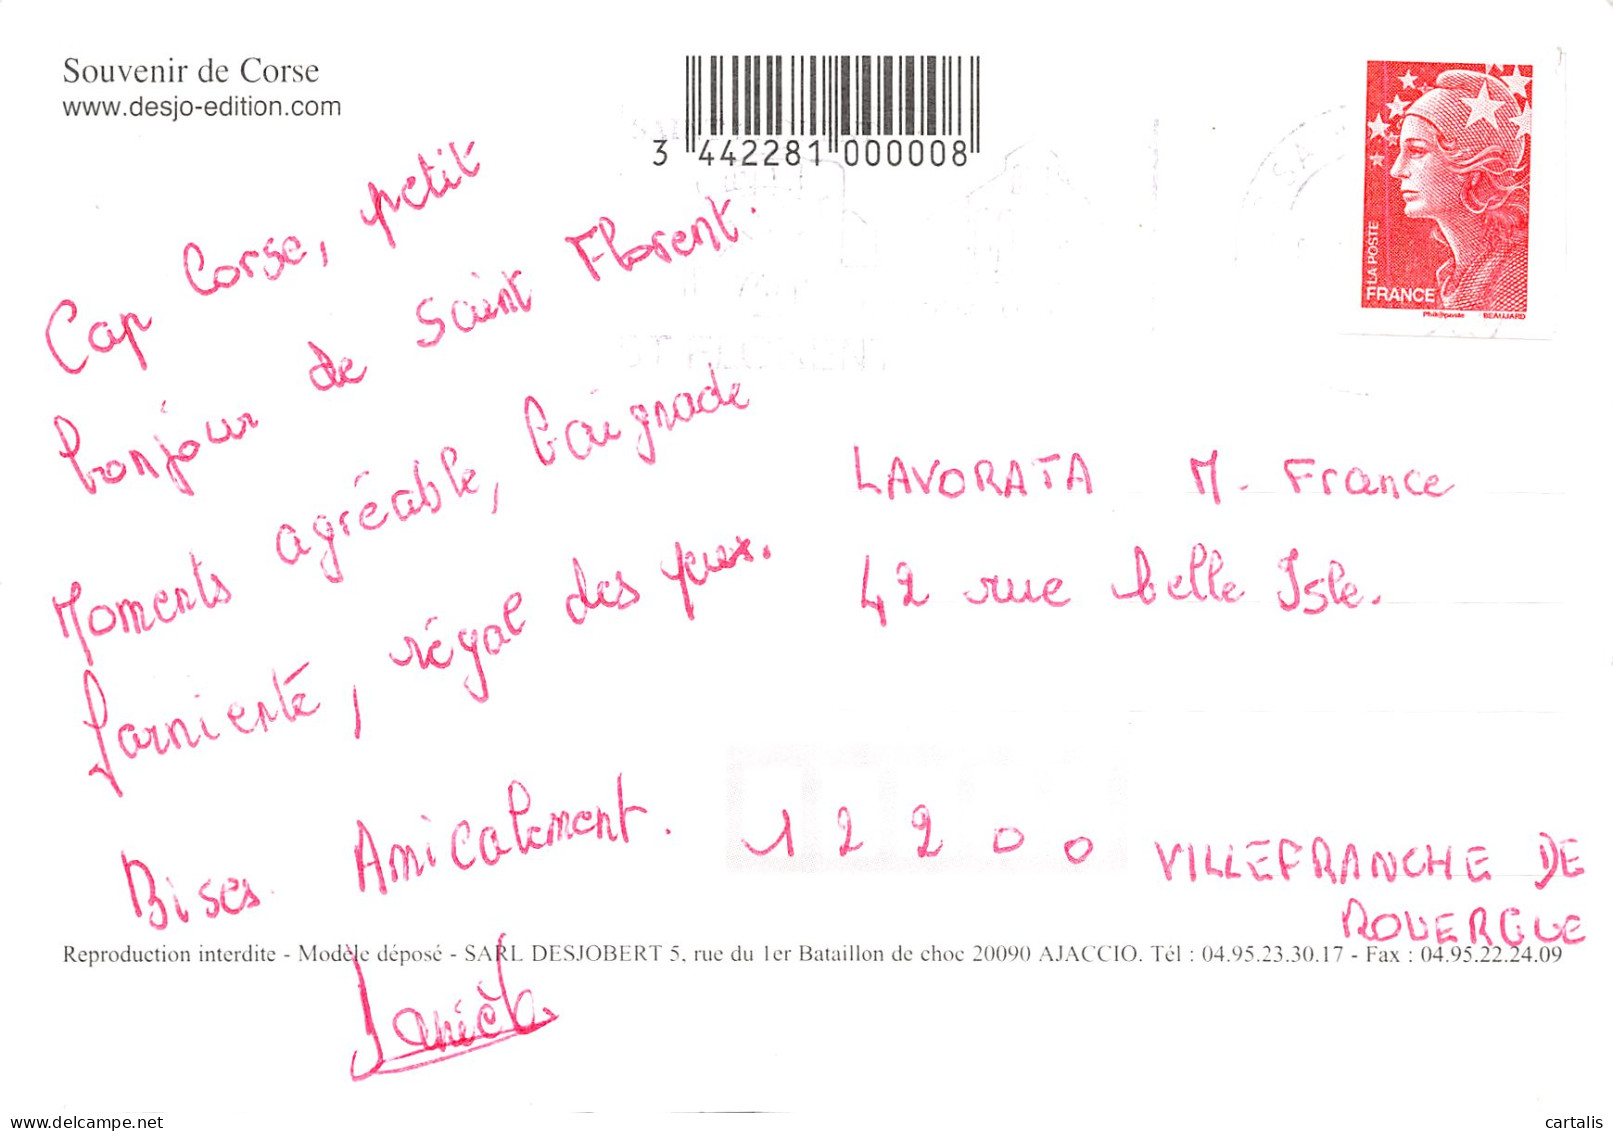 Souvenir de Corse
www.desjo-edition.com
3 442281 000008
LA POSTE
FRANCE
Phil@poste BEAUJARD
Cap Corse, petit
bonjour de Saint Florent.
Moments agréable, baignade
farniente, régal des yeux.
Bises. Amicalement.
LAVORATA M. France
42 rue belle Isle.
12200 VILLEFRANCHE DE
ROUERGUE
Reproduction interdite - Modèle déposé - SARL DESJOBERT 5, rue du 1er Bataillon de choc 20090 AJACCIO. Tél : 04.95.23.30.17 - Fax : 04.95.22.24.09
cartalis